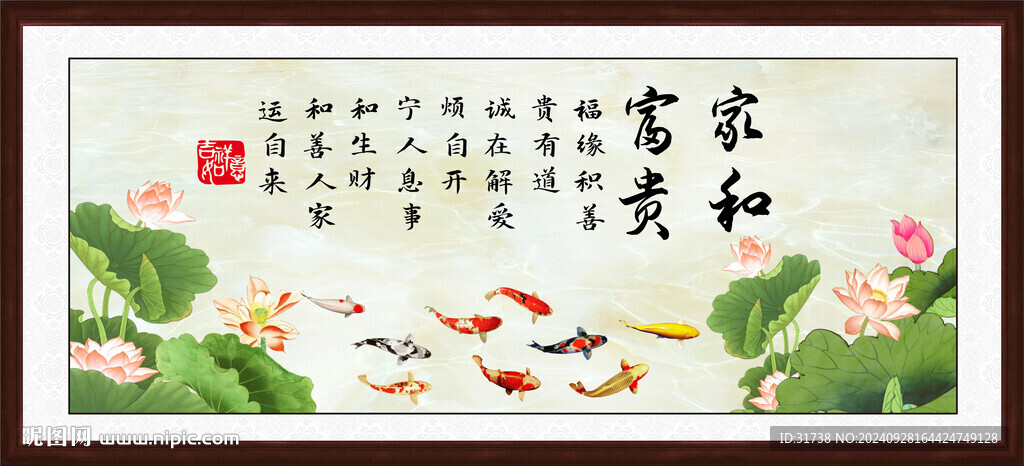 家和
富贵
福缘积善
贵有道
诚在解爱
烦自开
宁人息事
和生财
和善人家
运自来
吉祥如意
昵图网 www.nipic.com
ID:31738 NO:20240928164424749128